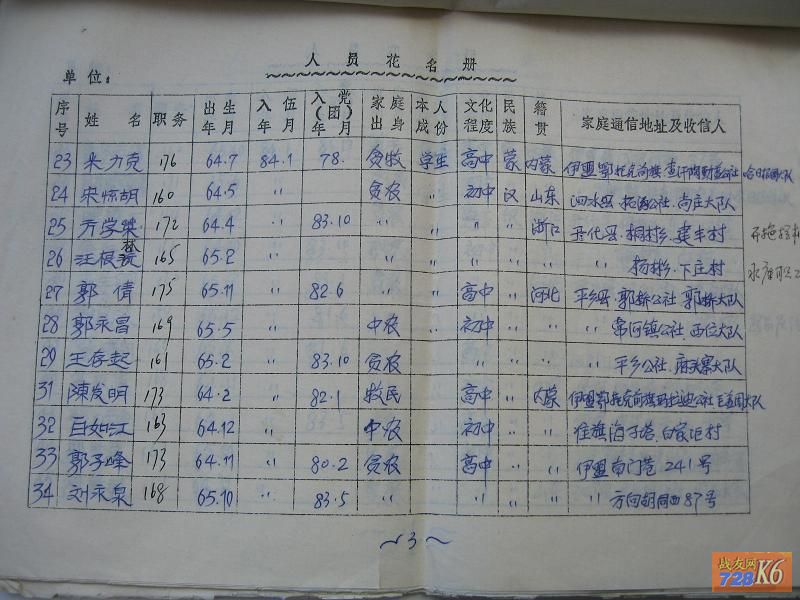 人员花名册
单位：
序号 姓名 职务 出生年月 入伍年月 入党(团)年月 家庭出身 本人成份 文化程度 民族 籍贯 家庭通信地址及收信人
23 朱力克 176 64.7 84.1 78. 贫牧 学生 高中 蒙 内蒙 伊盟鄂托克前旗
24 宋惊胡 160 64.5 〃 贫农 〃 初中 汉 山东 泗水县 公社 尚庄大队
25 方学 172 64.4 〃 83.10 〃 〃 〃 〃 浙江 开化县 桐村乡 丰村
26 汪根 165 65.2 〃 〃 〃 〃 〃 〃 〃 杨林乡 下庄村
27 郭倩 175 65.11 〃 82.6 〃 〃 高中 〃 河北 平乡县 郭桥公社 郭桥大队
28 郭永昌 169 65.5 〃 中农 〃 初中 〃 〃 〃 常河镇公社 西位大队
29 王存起 161 65.2 〃 83.10 贫农 〃 〃 〃 〃 〃 平乡公社 大队
31 陳发明 173 64.2 〃 82.1 牧民 〃 高中 〃 内蒙 伊盟鄂托克前旗 公社 大队
32 白如江 163 64.12 〃 中农 〃 初中 〃 〃 准旗海子塔 白家 村
33 郭子峰 173 64.11 〃 80.2 贫农 〃 高中 〃 〃 伊盟南门巷241号
34 刘永泉 168 65.10 〃 83.5 〃 〃 〃 〃 〃 〃 方向胡同西87号
~3~
战友网
728K6